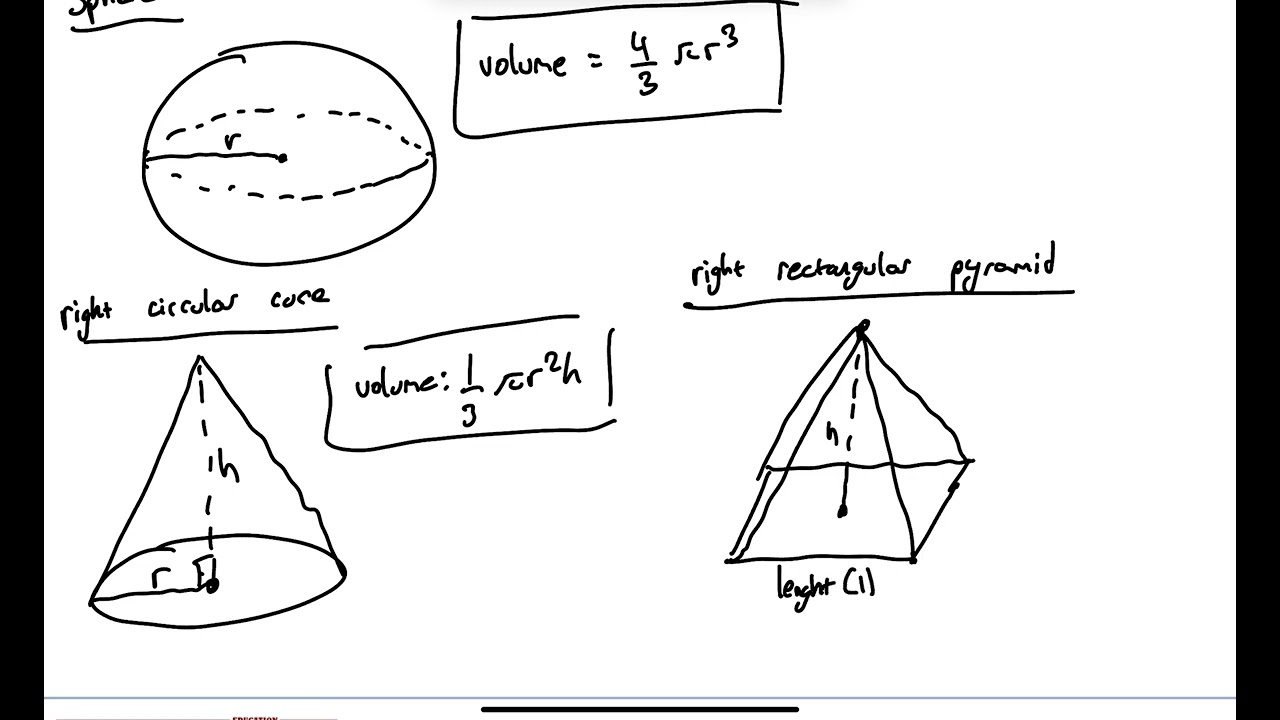 Sphere
volume = 4/3 πr³
r
right circular cone
volume: 1/3 πr²h
h
r
right rectangular pyramid
h
lenght (l)
EDUCATION